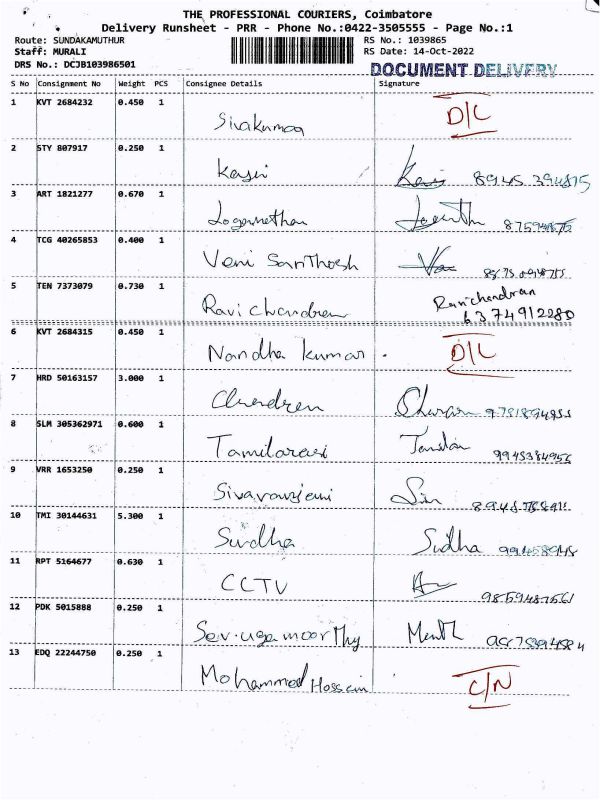 THE PROFESSIONAL COURIERS, Coimbatore
Delivery Runsheet - PRR - Phone No.:0422-3505555 - Page No.:1
Route: SUNDAKAMUTHUR RS No.: 1039865
Staff: MURALI RS Date: 14-Oct-2022
DRS No.: DCJB103986501 DOCUMENT DELIVERY
S No Consignment No Weight PCS Consignee Details Signature
1 KVT 2684232 0.450 1 Sivakumar D/L
2 STY 807917 0.250 1 Kasvi 8945 394875
3 ART 1821277 0.670 1 Loganathan
4 TCG 40265853 0.400 1 Veni Santhosh
5 TEN 7373079 0.730 1 Ravi chandren Ravichandran
6374912280
6 KVT 2684315 0.450 1 Nandha kumar D/L
7 HRD 50163157 3.000 1 Chendren
8 SLM 305362971 0.600 1 Tamilarasi 9945384956
9 VRR 1653250 0.250 1
10 TMI 30144631 5.300 1 Surdha Sudha
11 RPT 5164677 0.630 1 CCTV 9859487561
12 PDK 5015888 0.250 1
13 EDQ 22244750 0.250 1 Mohammed Hossain C/N